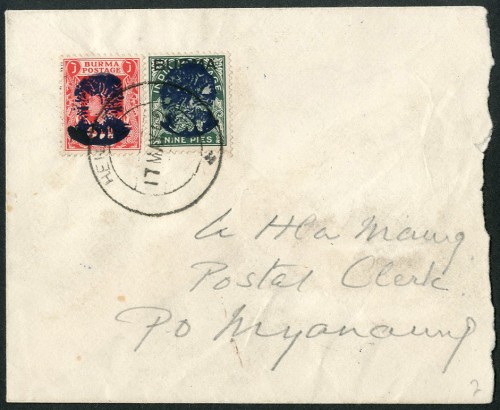 BURMA
POSTAGE
BURMA
NINE PIES
HEN
17 MA
U Hla Maung
Postal Clerk
PO Myanaung